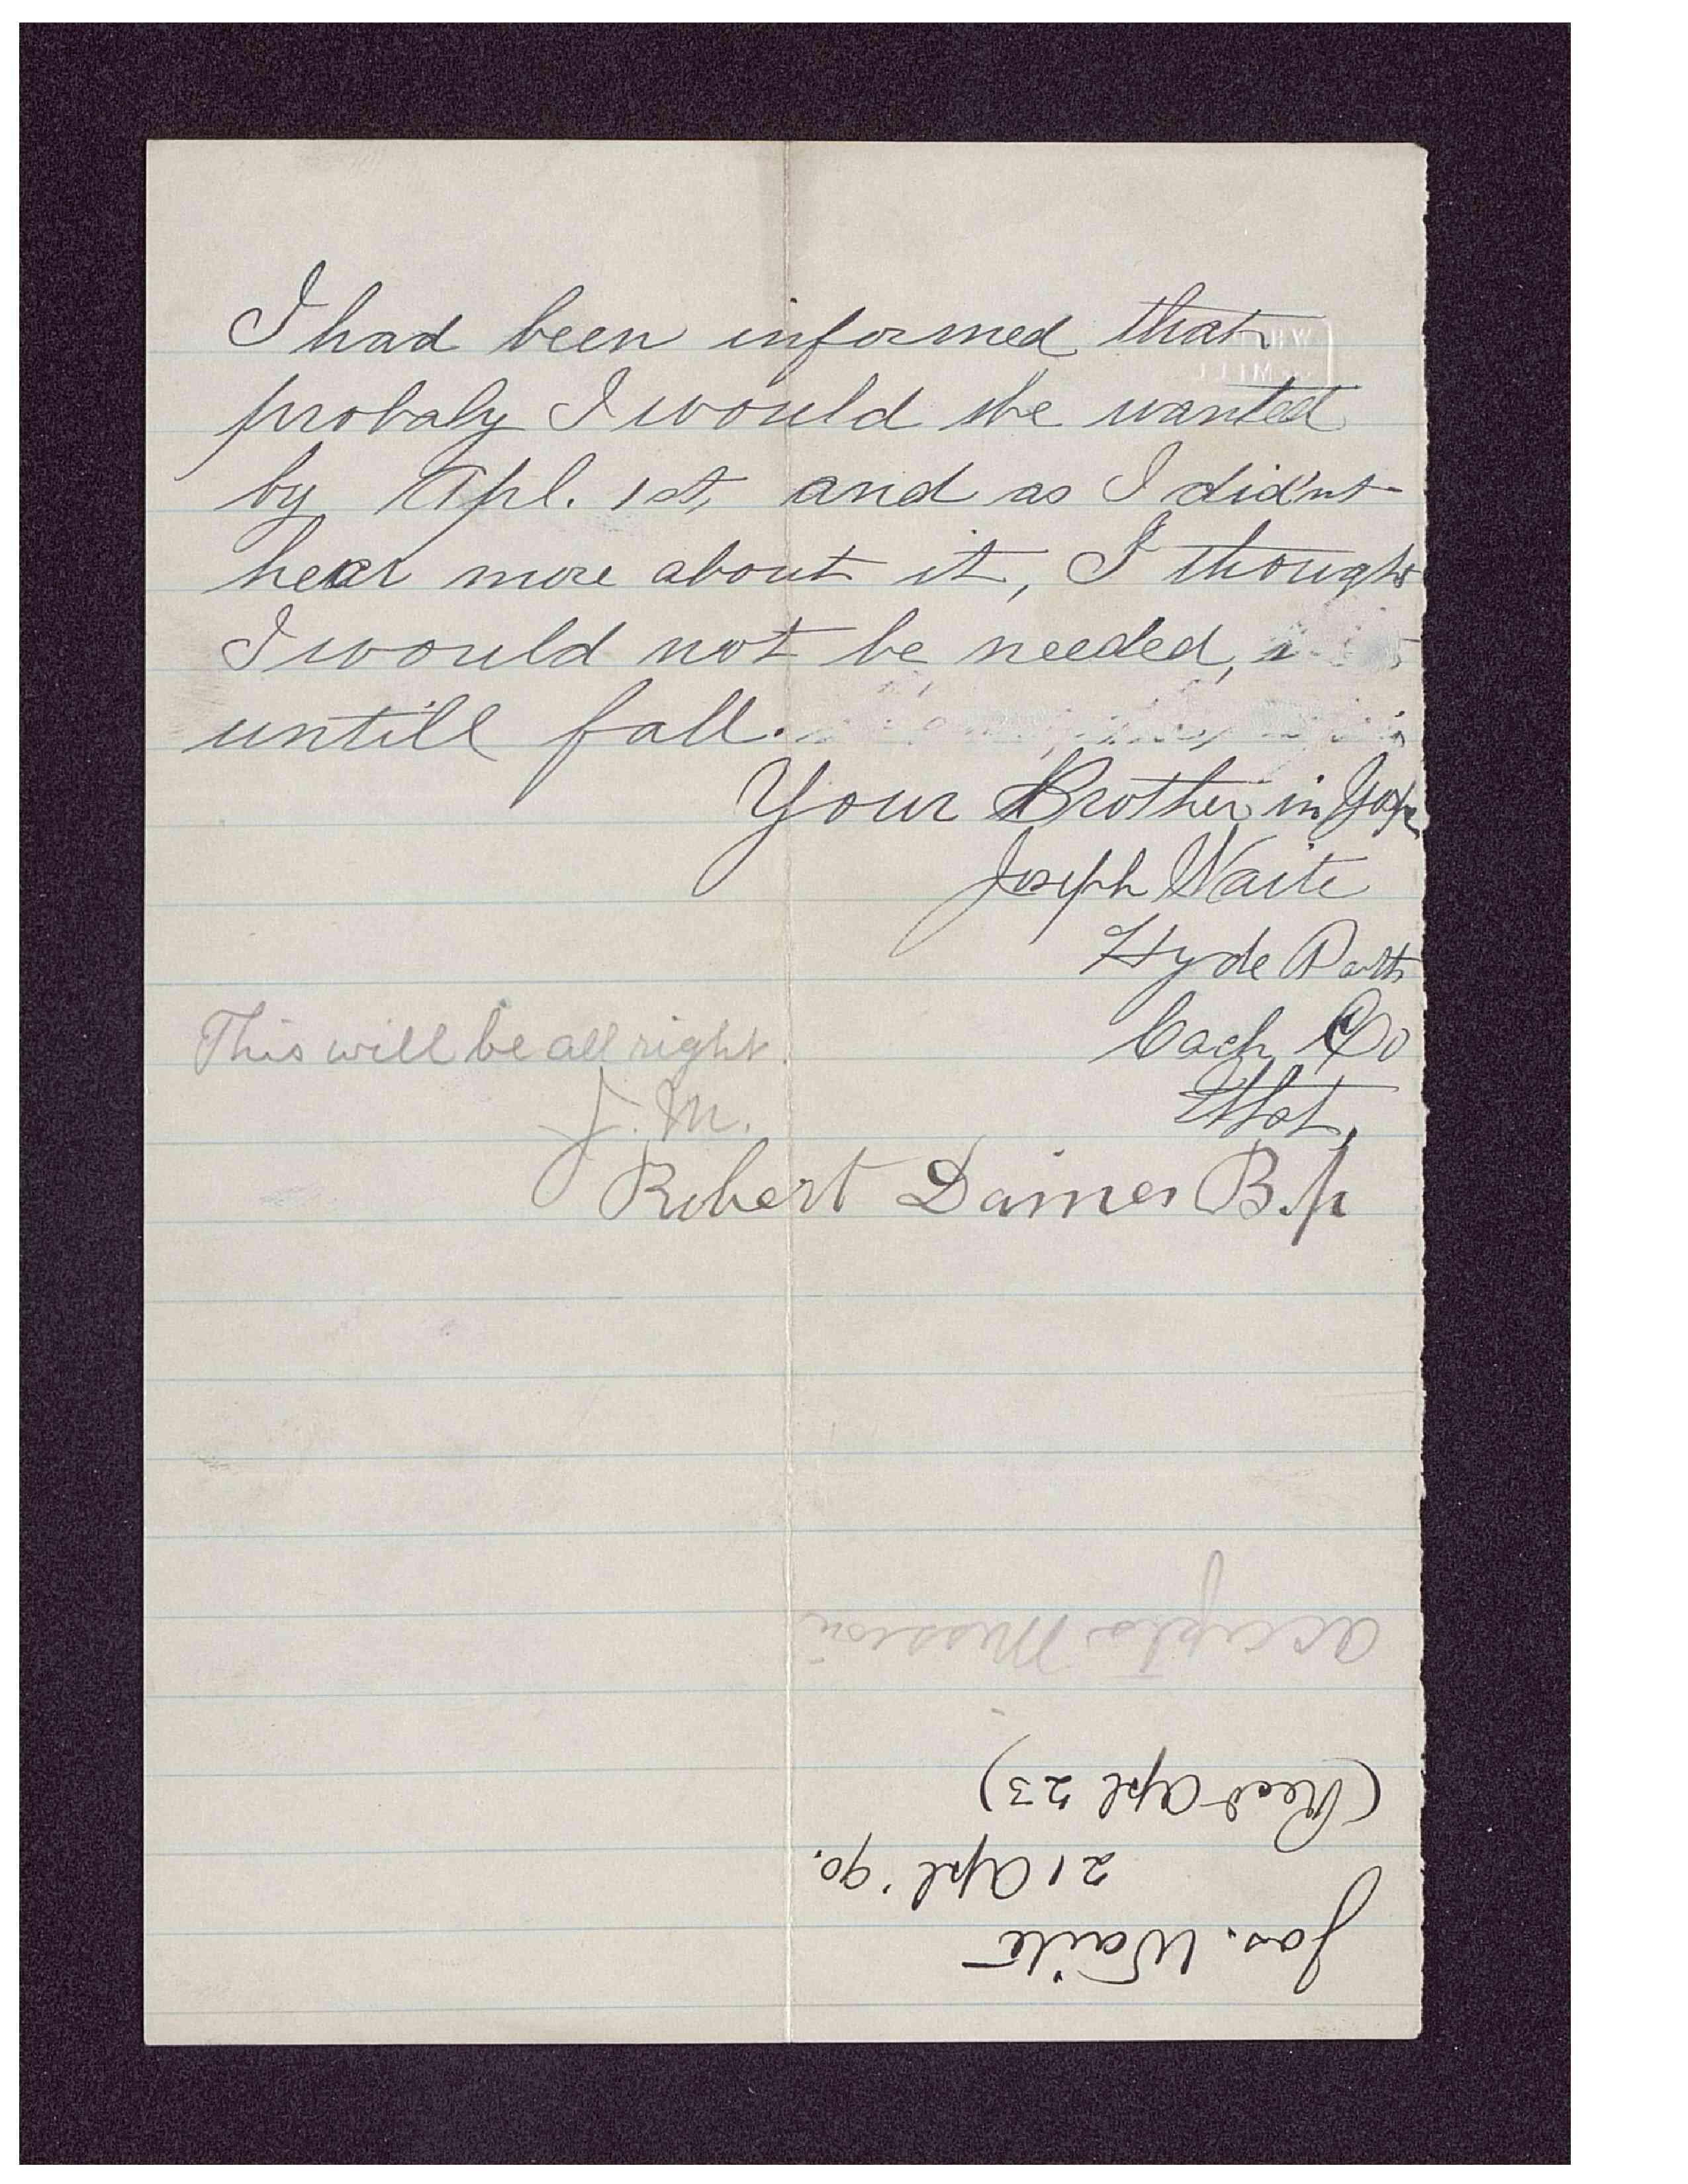 I had been informed that
probaly I would be wanted
by Apl. 1st, and as I did'nt
hear more about it, I thought
I would not be needed,
untill fall.
Your Brother in Gospe
Joseph Waite
Hyde Park
Cach Co
Utah,
This will be all right.
J. M.
Robert Daines B.p
accepts Mission
(Recd Apl 23)
21 Apl '90.
Jos. Waite